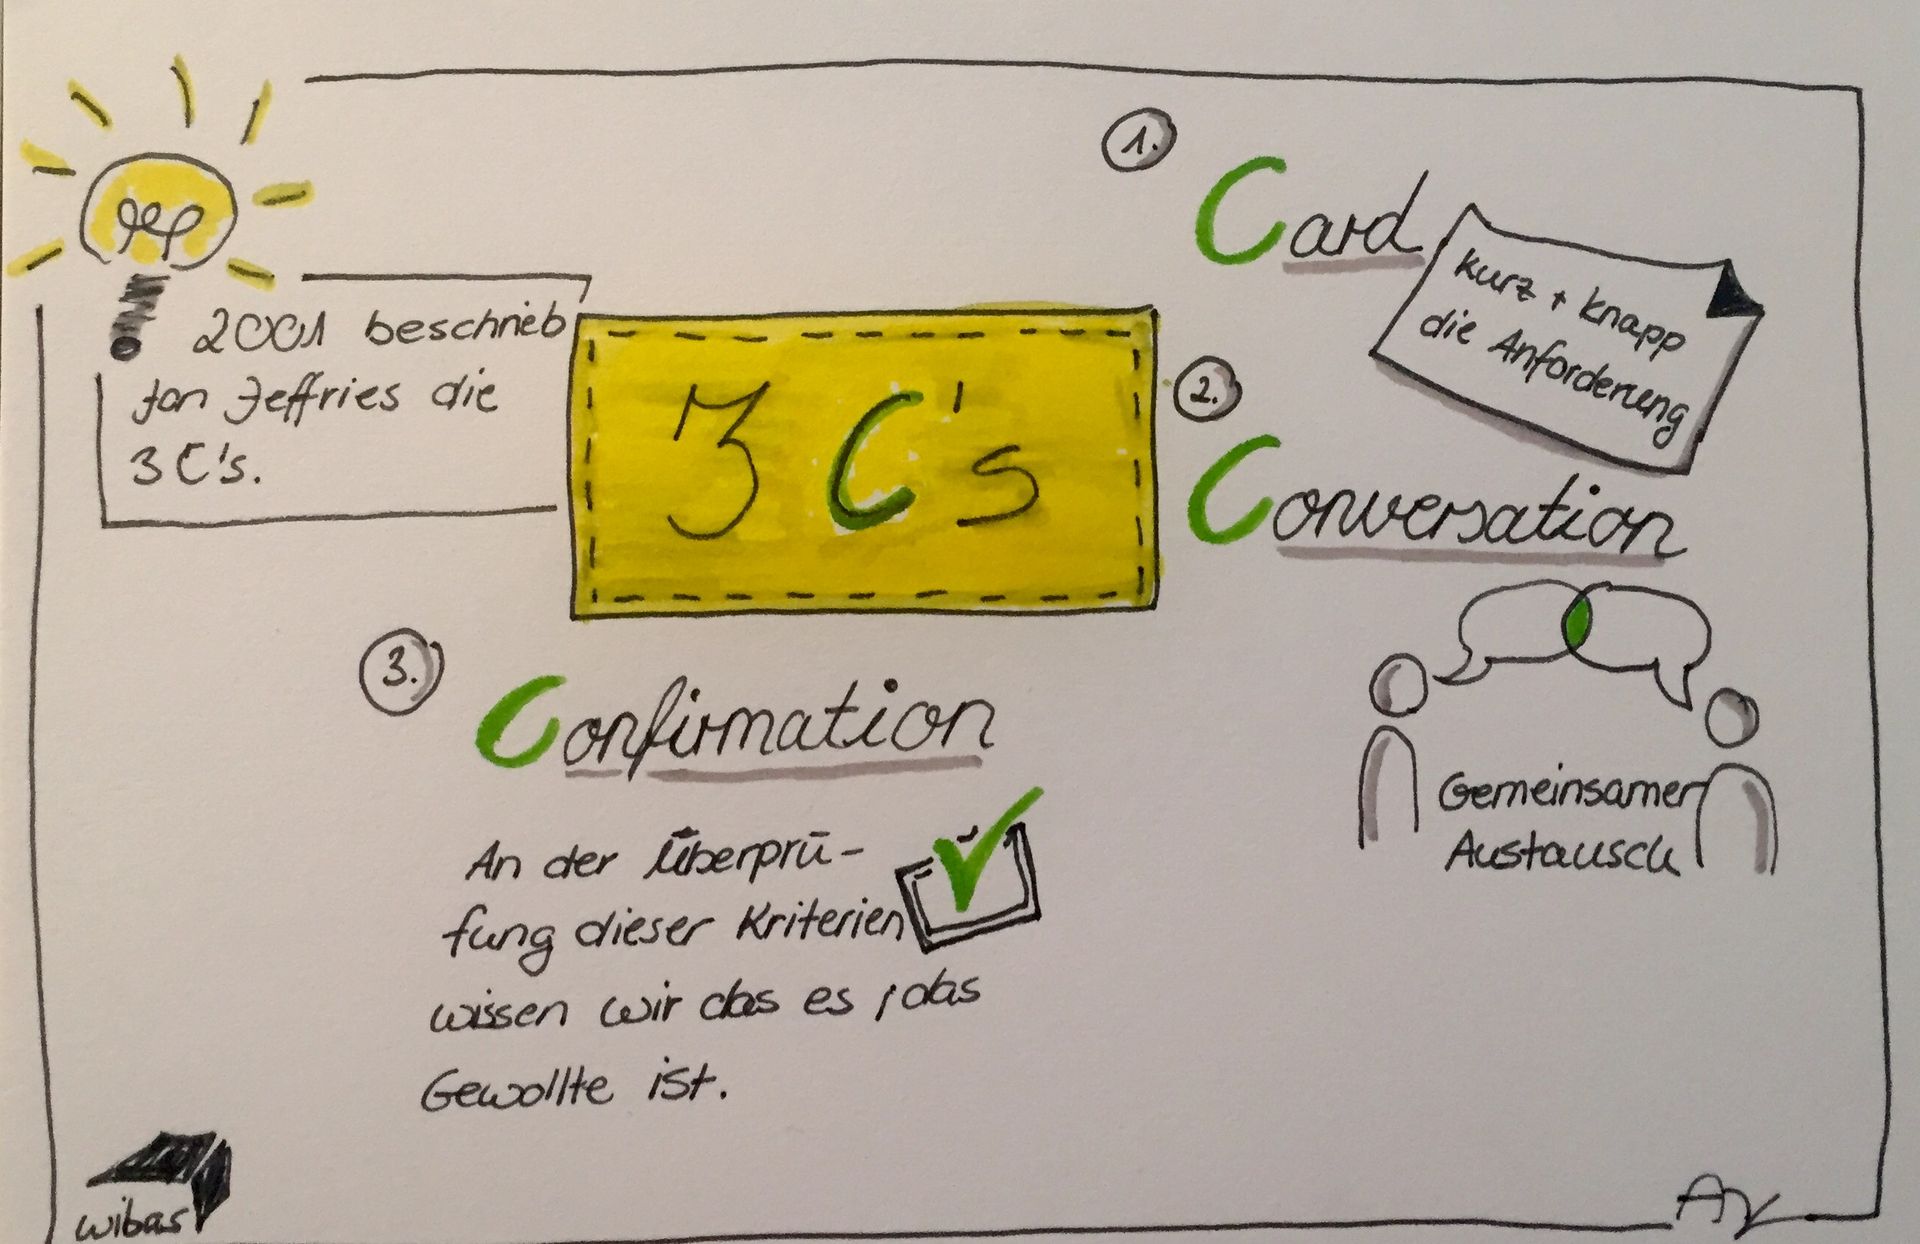 2001 beschrieb
Jon Jeffries die
3 C's.
3 C's
1.
Card
kurz + knapp
die Anforderung
2.
Conversation
Gemeinsamer
Austausch
3.
Confirmation
An der Überprü-
fung dieser Kriterien
wissen wir das es, das
Gewollte ist.
wibas
AV